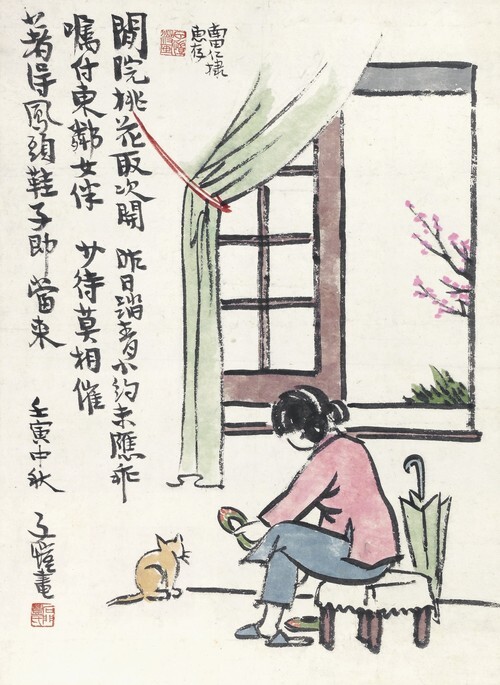 仁棣
惠存
閒院桃花取次開 昨日踏青小約未應乖
囑付東鄰女伴 少待莫相催
著得鳳頭鞋子即當來
壬寅中秋 子愷畫